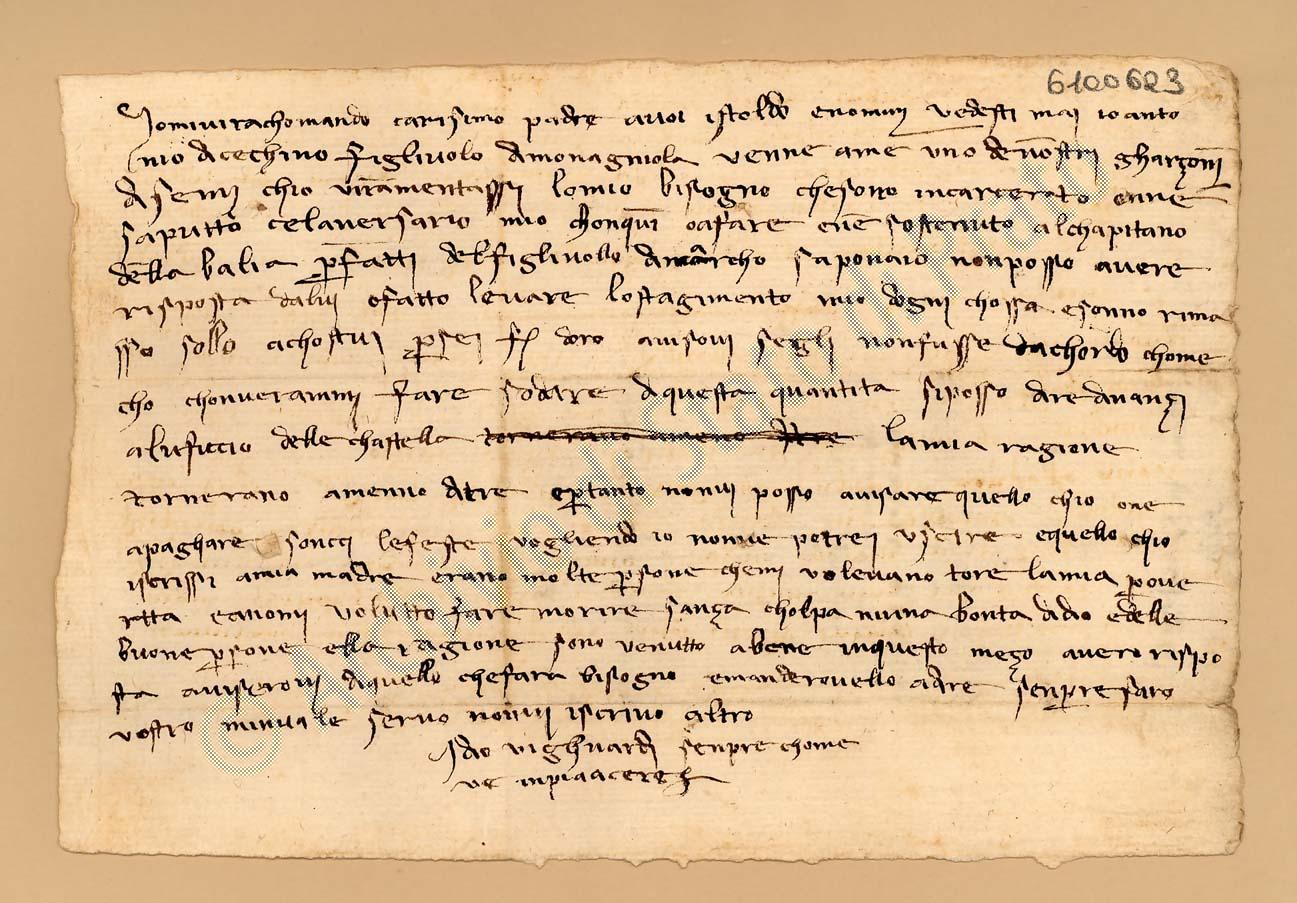 6100623
Iomivirachomando carisimo padre avoi istoldo enomivi vedesti mai io anto
nio dacechino figlivolo damonagniola venne ame uno devostri gharçoni
disemi chio viramentassi lomio bisogno chesono incarcerato enne
saputto celaversario mio chonqui oafare ene sostenuto alchapitano
della balia per fatti delfiglivollo damarcho saponaio nonposso avere
risposta dalui ofatto levare lostagimento mio dogni chossa esonno rima
sso sollo achostui per sei f. doro avisovi segli nonfusse dachordo chome
cho chonverammi fare sodare diquesta quantita siposso aredinançi
aluficcio delle chastella tornerano ameno dtre lamia ragione
tornerano amenno dtre epertanto nonvi posso avisare quello chio one
apaghare soncci lefeste vogliendo io nonne potrei uscire equello chio
iscrissi amia madre erano molte persone chemi volevano tore lamia pove
rtta eanomi volutto fare morire sança cholpa niuna bonta didio edelle
buone persone ella ragione sono venutto abene inquesto meço avero rispo
sta aviserovi diquello chefara bisogno emanderovello adire senpre saro
vostro minuale servo nonvi iscrivo altro
Idio vighuardi senpre chome
ve inpiaacere
© Archivio di Stato di Prato